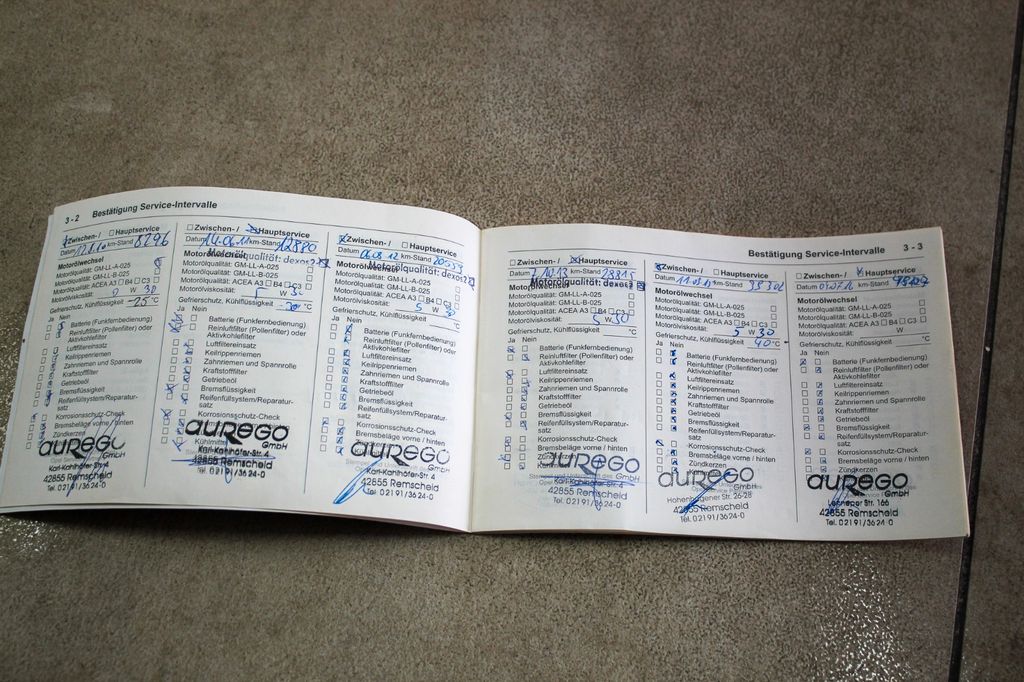 3 - 2 Bestätigung Service-Intervalle
Zwischen- / Hauptservice
Datum km-Stand 8296
Motorölwechsel
Motorölqualität: GM-LL-A-025
Motorölqualität: GM-LL-B-025
Motorölqualität: ACEA A3 B4 C3
Motorölviskosität: 0 W 30
Gefrierschutz, Kühlflüssigkeit -25 °C
Ja Nein
Batterie (Funkfernbedienung)
Reinluftfilter (Pollenfilter) oder
Aktivkohlefilter
Luftfiltereinsatz
Keilrippenriemen
Zahnriemen und Spannrolle
Kraftstofffilter
Getriebeöl
Bremsflüssigkeit
Reifenfüllsystem/Reparatur-
satz
Korrosionsschutz-Check
Bremsbeläge vorne / hinten
Zündkerzen
aurego
GmbH
Karl-Kahlhöfer-Str. 4
42855 Remscheid
Tel. 02191/3624-0
Zwischen- / Hauptservice
Datum 14.06.11 km-Stand 12880
Motorölwechsel
Motorölqualität: dexos2
Motorölqualität: GM-LL-A-025
Motorölqualität: GM-LL-B-025
Motorölqualität: ACEA A3 B4 C3
Motorölviskosität: 5 W 30
Gefrierschutz, Kühlflüssigkeit °C
Ja Nein
Batterie (Funkfernbedienung)
Reinluftfilter (Pollenfilter) oder
Aktivkohlefilter
Luftfiltereinsatz
Keilrippenriemen
Zahnriemen und Spannrolle
Kraftstofffilter
Getriebeöl
Bremsflüssigkeit
Reifenfüllsystem/Reparatur-
satz
Korrosionsschutz-Check
aurego
GmbH
Karl-Kahlhöfer-Str. 4
42855 Remscheid
Tel. 02191/3624-0
Zwischen- / Hauptservice
Datum 06.08.12 km-Stand
Motorölwechsel
Motorölqualität: dexos2
Motorölqualität: GM-LL-A-025
Motorölqualität: GM-LL-B-025
Motorölqualität: ACEA A3 B4 C3
Motorölviskosität: 5 W 30
Gefrierschutz, Kühlflüssigkeit °C
Ja Nein
Batterie (Funkfernbedienung)
Reinluftfilter (Pollenfilter) oder
Aktivkohlefilter
Luftfiltereinsatz
Keilrippenriemen
Zahnriemen und Spannrolle
Kraftstofffilter
Getriebeöl
Bremsflüssigkeit
Reifenfüllsystem/Reparatur-
satz
Korrosionsschutz-Check
Bremsbeläge vorne / hinten
aurego
GmbH
Karl-Kahlhöfer-Str. 4
42855 Remscheid
Tel. 02191/3624-0
Bestätigung Service-Intervalle 3 - 3
Zwischen- / Hauptservice
Datum km-Stand 28815
Motorölwechsel
Motorölqualität: dexos2
Motorölqualität: GM-LL-A-025
Motorölqualität: GM-LL-B-025
Motorölqualität: ACEA A3 B4 C3
Motorölviskosität: 5 W 30
Gefrierschutz, Kühlflüssigkeit °C
Ja Nein
Batterie (Funkfernbedienung)
Reinluftfilter (Pollenfilter) oder
Aktivkohlefilter
Luftfiltereinsatz
Keilrippenriemen
Zahnriemen und Spannrolle
Kraftstofffilter
Getriebeöl
Bremsflüssigkeit
Reifenfüllsystem/Reparatur-
satz
Korrosionsschutz-Check
Bremsbeläge vorne / hinten
aurego
GmbH
Karl-Kahlhöfer-Str. 4
42855 Remscheid
Tel. 02191/3624-0
Zwischen- / Hauptservice
Datum km-Stand
Motorölwechsel
Motorölqualität: GM-LL-A-025
Motorölqualität: GM-LL-B-025
Motorölqualität: ACEA A3 B4 C3
Motorölviskosität: 5 W 30
Gefrierschutz, Kühlflüssigkeit -40 °C
Ja Nein
Batterie (Funkfernbedienung)
Reinluftfilter (Pollenfilter) oder
Aktivkohlefilter
Luftfiltereinsatz
Keilrippenriemen
Zahnriemen und Spannrolle
Kraftstofffilter
Getriebeöl
Bremsflüssigkeit
Reifenfüllsystem/Reparatur-
satz
Korrosionsschutz-Check
Bremsbeläge vorne / hinten
Zündkerzen
aurego
GmbH
Hohenhagener Str. 26-28
42855 Remscheid
Tel. 02191/3624-0
Zwischen- / Hauptservice
Datum km-Stand
Motorölwechsel
Motorölqualität: GM-LL-A-025
Motorölqualität: GM-LL-B-025
Motorölqualität: ACEA A3 B4 C3
Motorölviskosität: W
Gefrierschutz, Kühlflüssigkeit °C
Ja Nein
Batterie (Funkfernbedienung)
Reinluftfilter (Pollenfilter) oder
Aktivkohlefilter
Luftfiltereinsatz
Keilrippenriemen
Zahnriemen und Spannrolle
Kraftstofffilter
Getriebeöl
Bremsflüssigkeit
Reifenfüllsystem/Reparatur-
satz
Korrosionsschutz-Check
Bremsbeläge vorne / hinten
Zündkerzen
aurego
GmbH
Lenneper Str. 166
42855 Remscheid
Tel. 02191/3624-0